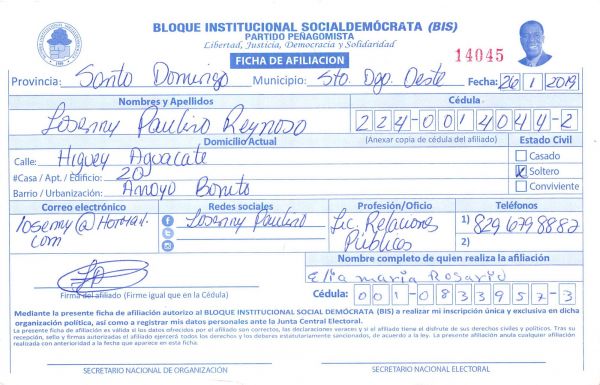 BLOQUE INSTITUCIONAL SOCIALDEMÓCRATA (BIS)
PARTIDO PEÑAGOMISTA
Libertad, Justicia, Democracia y Solidaridad
FICHA DE AFILIACION
14045
Provincia: Santo Domingo Municipio: Sto. Dgo. Oeste Fecha: 26 1 2019
Nombres y Apellidos Cédula
Losenny Paulino Reynoso 224-0014044-2
Domicilio Actual (Anexar copia de cédula del afiliado) Estado Civil
Calle: Higuey Aguacate Casado
#Casa / Apt. / Edificio: 20 X Soltero
Barrio / Urbanización: Arroyo Bonito Conviviente
Correo electrónico Redes sociales Profesión/Oficio Teléfonos
losenny@Hotmail.com Losenny Paulino Lic. Relaciones Públicas 1) 829 679 8882
2)
Nombre completo de quien realiza la afiliación
Elia maria Rosario
Firma del afiliado (Firme igual que en la Cédula) Cédula: 001-0833957-3
Mediante la presente ficha de afiliación autorizo al BLOQUE INSTITUCIONAL SOCIAL DEMÓCRATA (BIS) a realizar mi inscripción única y exclusiva en dicha
organización política, así como a registrar mis datos personales ante la Junta Central Electoral.
La presente ficha de afiliación es válida si los datos ofrecidos por el afiliado son correctos, las declaraciones veraces y si el afiliado tiene el disfrute de sus derechos civiles y políticos. Tras su
recepción, sello y firmas autorizadas el afiliado ejercerá todos los derechos y los deberes estatutariamente sancionados, de acuerdo a la ley. La presente afiliación anula cualquier afiliación
realizada con anterioridad a la fecha que aparece en esta ficha.
SECRETARIO NACIONAL DE ORGANIZACIÓN SECRETARIO NACIONAL ELECTORAL